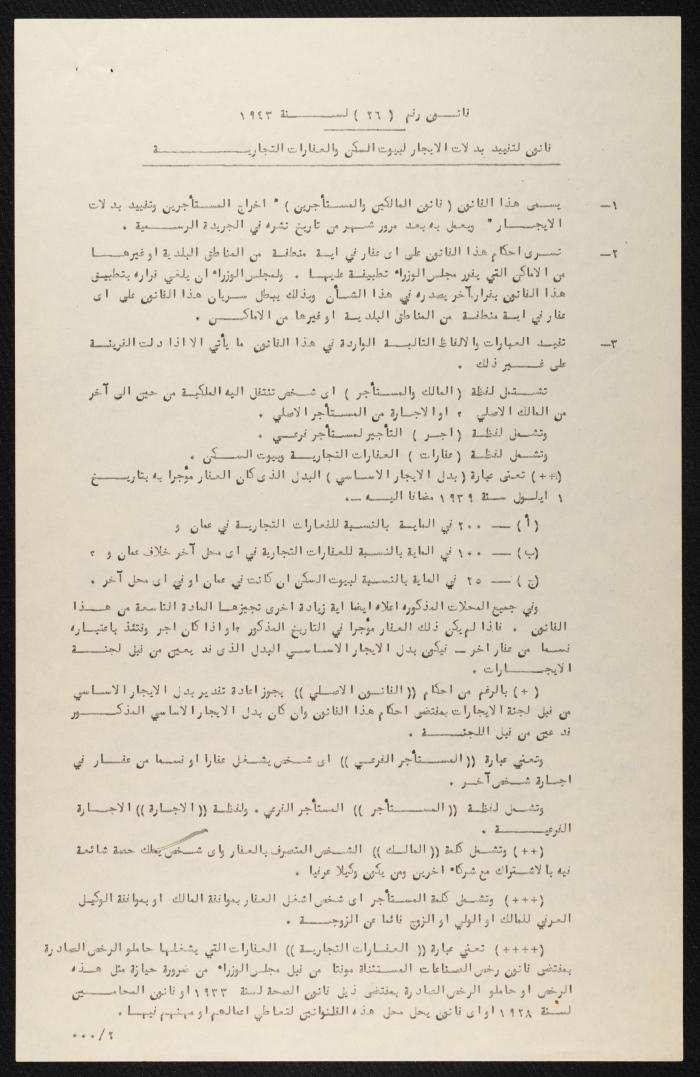 قانــون رقم ( ٢٦ ) لســـــنة ١٩٤٣
قانون لتقييد بدلات الايجار لبيوت السكن والعقارات التجاريـــــــة
١ــ يســمى هذا القانون ( قانون المالكين والمســتأجرين ) " اخراج المســتأجرين وتقييد بدلات
الايجـــار " ويعمل به بعد مرور شــهر من تاريخ نشره في الجريدة الرســمية .
٢ــ تسرى احكام هذا القانون على اى عقار في ايــة منطقــة من المناطق البلدية او غيرهــا
من الاماكن التي يقرر مجلس الوزراء تطبيقــه عليهــا . ولمجلس الوزراء ان يلغي قراره بتطبيــق
هذا القانون بقرار آخر يصدره في هذا الشــأن وبذلك يبطل سريان هذا القانون على اى
عقار في ايــة منطقــة من المناطق البلديــة او غيرها من الاماكــن .
٣ــ تفيد العبارات والالفاظ التاليــة الواردة في هذا القانون ما يأتي الا اذا دلت القرينــة
على غــير ذلك .
تشــتمل لفظــة ( المالك والمســتأجر ) اى شــخص تنتقل اليه الملكيــة من حين الى آخر
من المالك الاصلي ، او الاجارة من المســتأجر الاصلي .
وتشــمل لفظــة ( اجــر ) التأجير لمســتأجر فرعــي .
وتشــمل لفظــة ( عقارات ) العقارات التجاريــة وبيوت الســكن .
(++) تعنى عبارة ( بدل الايجار الاســاسي ) البدل الذى كان العقار مؤجرا به بتاريــــخ
١ ايلــول سنة ١٩٣٩ مضافا اليــه ــ.
( أ ) ـــ ٢٠٠ في المايــة بالنسبة للعقارات التجاريــة في عمان و
(ب) ـــ ١٠٠ في الماية بالنسبة للعقارات التجارية في اى محل آخر خلاف عمان و ،
( ج ) ـــ ٢٥ في الماية بالنسبة لبيوت السكن ان كانت في عمان او في اى محل آخر .
وفي جميع المحلات المذكوره اعلاه ايضا اية زيادة اخرى تجيزهــا المادة التاسعة من هــذا
القانون . فاذا لم يكن ذلك العقار مؤجرا في التاريخ المذكور ، او اذا كان اجر وقتئذ باعتبــاره
قسمــا من عقار اخر ــ فيكون بدل الايجار الاســاسي البدل الذى قد يعين من قبل لجنــــة
الايجــــارات .
( + ) بالرغم من احكام (( القانــون الاصــلي )) يجوز اعادة تقدير بدل الايجار الاساسي
من قبل لجنة الايجارات بمقتضى احكام هذا القانون وان كان بدل الايجار الاساسي المذكـــور
قد عين من قبل اللجنــــة .
وتعني عبارة (( المســتأجر الفرعــي )) اى شــخص يشــغل عقارا او قسمــا من عقــار في
اجارة شــخص آخــر .
وتشــمل لفظــة (( المســـتأجر )) المستأجر الفرعي . ولفظــة (( الاجــارة )) الاجــارة
الفرعيــــة .
(++) وتشــمل كلمة (( المالــك )) الشــخص المتصرف بالعقار واى شــخص يملك حصة شائعة
فيه بالاشــتراك مع شركاء اخرين ومن يكون وكيلا عرفيا .
(+++) وتشــمل كلمة المســتأجر اى شخص اشغل العقار بموافقة المالك او بموافقة الوكيــل
العرفي للمالك او الولي او الزوج قائما عن الزوجــــة .
(++++) تعني عبارة (( العقــارات التجاريــة )) العقارات التي يشغلهــا حاملو الرخص الصادرة
بمقتضى قانون رخص الصناعات المســتثناة موقتا من قبل مجلس الوزراء من ضرورة حيازة مثل هــذه
الرخص او حاملو الرخص الصادرة بمقتضى ذيل قانون الصحة لسنة ١٩٣٣ او قانون المحامـــين
لسنة ١٩٢٨ او اى قانون يحل محل هذه القوانين لتعاطي اعمالهم او مهنهم فيهــا .
٠٠٠/٢